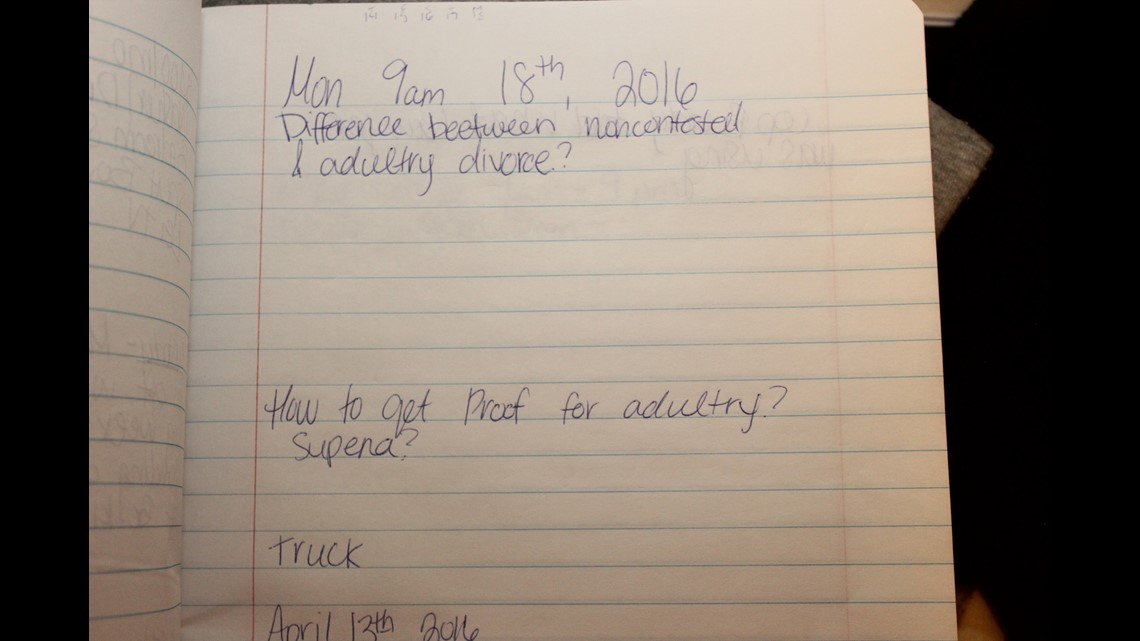 14 15 16 17 18
Mon 9am 18th, 2016
Difference beetween noncontested
& adultry divorce?
How to get Proof for adultry?
Supena?
truck
April 13th 2016